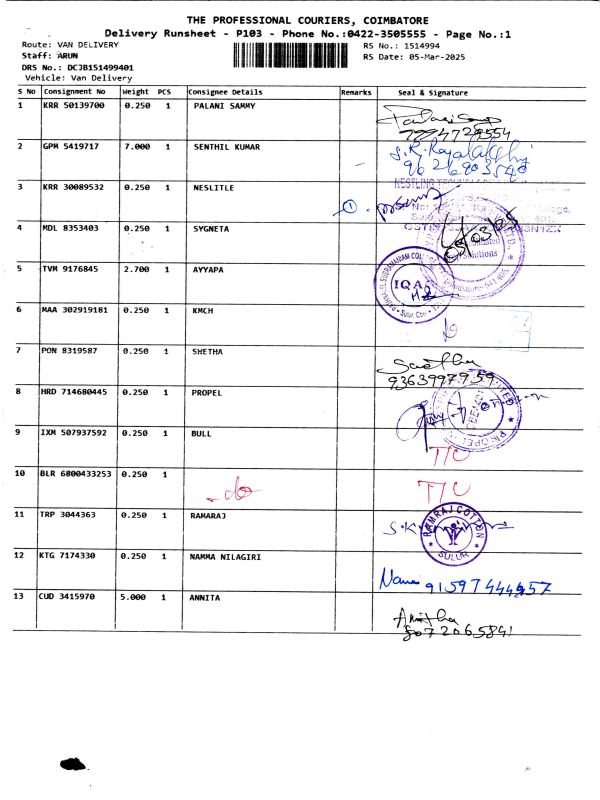 THE PROFESSIONAL COURIERS, COIMBATORE
Delivery Runsheet - P103 - Phone No.:0422-3505555 - Page No.:1
Route: VAN DELIVERY RS No.: 1514994
Staff: ARUN RS Date: 05-Mar-2025
DRS No.: DCJB151499401
Vehicle: Van Delivery
S No Consignment No Weight PCS Consignee Details Remarks Seal & Signature
1 KRR 50139700 0.250 1 PALANI SAMMY
2 GPM 5419717 7.000 1 SENTHIL KUMAR
3 KRR 30089532 0.250 1 NESLITLE
4 MDL 8353403 0.250 1 SYGNETA
5 TVM 9176845 2.700 1 AYYAPA
IQAC
6 MAA 302919181 0.250 1 KMCH
7 PON 8319587 0.250 1 SHETHA
9363997959
8 HRD 714680445 0.250 1 PROPEL
9 IXM 507937592 0.250 1 BULL
T/C
10 BLR 6800433253 0.250 1 do
T/C
11 TRP 3044363 0.250 1 RAMARAJ
S.K RAMRAJ COTTON SULUR
12 KTG 7174330 0.250 1 NAMMA NILAGIRI
13 CUD 3415970 5.000 1 ANNITA
8072065841